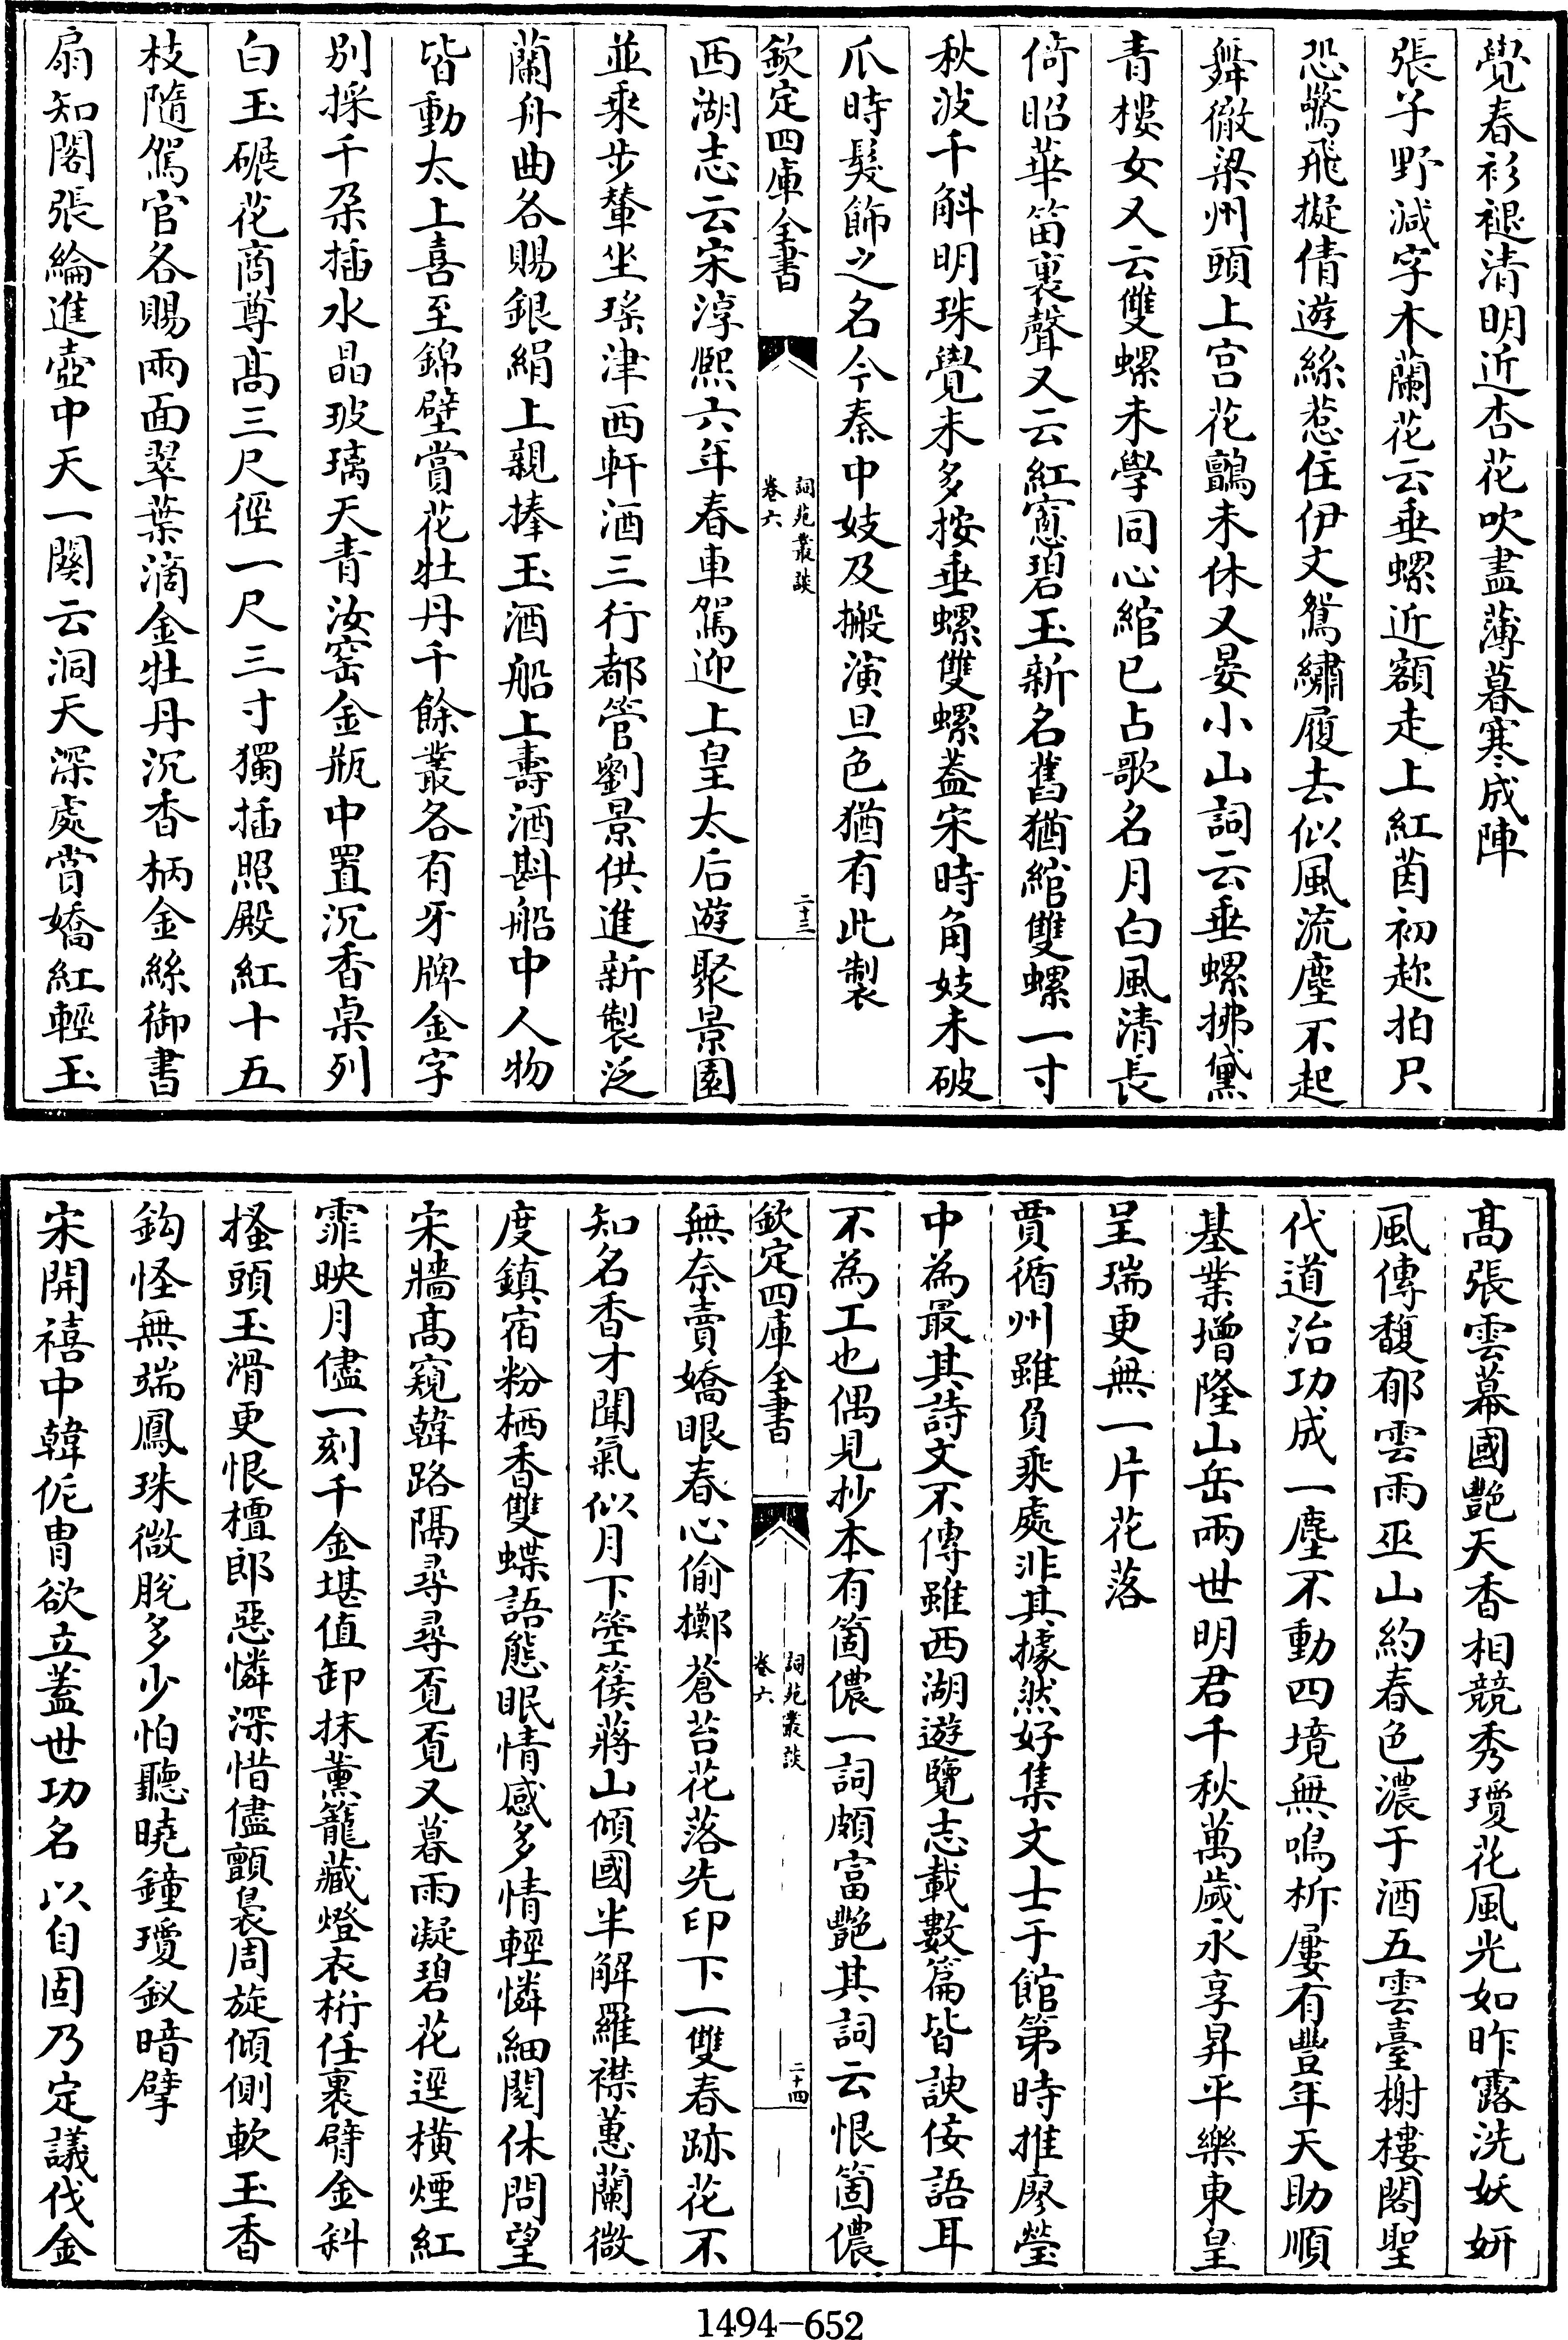 覺春衫褪清明近杏花吹盡薄暮寒成陣
張子野減字木蘭花云垂螺近額走上紅茵初趂拍只
恐驚飛擬倩遊絲惹住伊文鴛繡履去似風流塵不起
舞徹梁州頭上宫花顫未休又晏小山詞云垂螺拂黛
青樓女又云雙螺未學同心綰已占歌名月白風清長
倚昭華笛裏聲又云紅窻碧玉新名舊猶綰雙螺一寸
秋波千斛明珠覺未多按垂螺雙螺葢宋時角妓未破
爪時髮飾之名今秦中妓及搬演旦色猶有此製
欽定四庫全書
詞苑叢談
卷六
二十三
西湖志云宋淳熙六年春車駕迎上皇太后遊聚景園
並乘步輦坐瑤津西軒酒三行都管劉景供進新製泛
蘭舟曲各賜銀絹上親捧玉酒船上壽酒斟船中人物
皆動太上喜至錦壁賞花牡丹千餘叢各有牙牌金字
别採千朶插水晶玻璃天青汝窑金瓶中置沉香桌列
白玉碾花商尊髙三尺徑一尺三寸獨插照殿紅十五
枝隨駕官各賜兩面翠葉滴金牡丹沉香柄金絲御書
扇知閤張綸進壺中天一闋云洞天深處賞嬌紅輕玉
髙張雲幕國艷天香相競秀瓊花風光如昨露洗妖妍
風傳馥郁雲雨巫山約春色濃于酒五雲臺榭樓閣聖
代道治功成一塵不動四境無鳴柝屢有豐年天助順
基業增隆山岳兩世明君千秋萬歲永享昇平樂東皇
呈瑞更無一片花落
賈循州雖負乘處非其據然好集文士于館第時推廖瑩
中為最其詩文不傳雖西湖遊覽志載數篇皆諛佞語耳
不為工也偶見抄本有箇儂一詞頗富艷其詞云恨箇儂
欽定四庫全書
詞苑叢談
卷六
二十四
無奈賣嬌眼春心偷擲蒼苔花落先印下一雙春跡花不
知名香才聞氣似月下箜篌蔣山傾國半解羅襟蕙蘭微
度鎮宿粉栖香雙蝶語態眠情感多情輕憐細閲休問望
宋牆髙窺韓路隔尋尋覔覔又暮雨凝碧花逕橫煙紅
霏映月儘一刻千金堪值卸抹薰籠藏燈衣桁任裹臂金斜
搔頭玉滑更恨檀郎惡憐深惜儘顫裊周旋傾側軟玉香
鈎怪無端鳳珠微脫多少怕聽曉鐘瓊釵暗擘
宋開禧中韓侂胄欲立葢世功名以自固乃定議伐金
1494-652